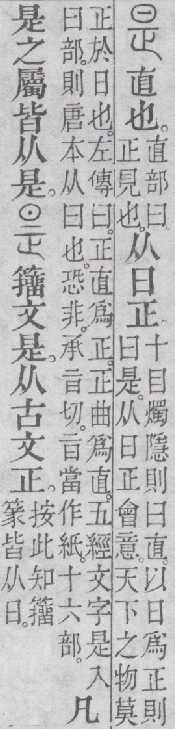 是直也。直部曰正見也。从日正十目燭隱則曰直。以日爲正則曰是。从日正會意。天下之物莫
正於日也。左傳曰。正直爲正。正曲爲直。五經文字是入曰部。則唐本从曰也。恐非。承旨切。旨當作紙。十六部。凡
是之屬皆从是。籒文是。从古文正。按此知籒篆皆从日。